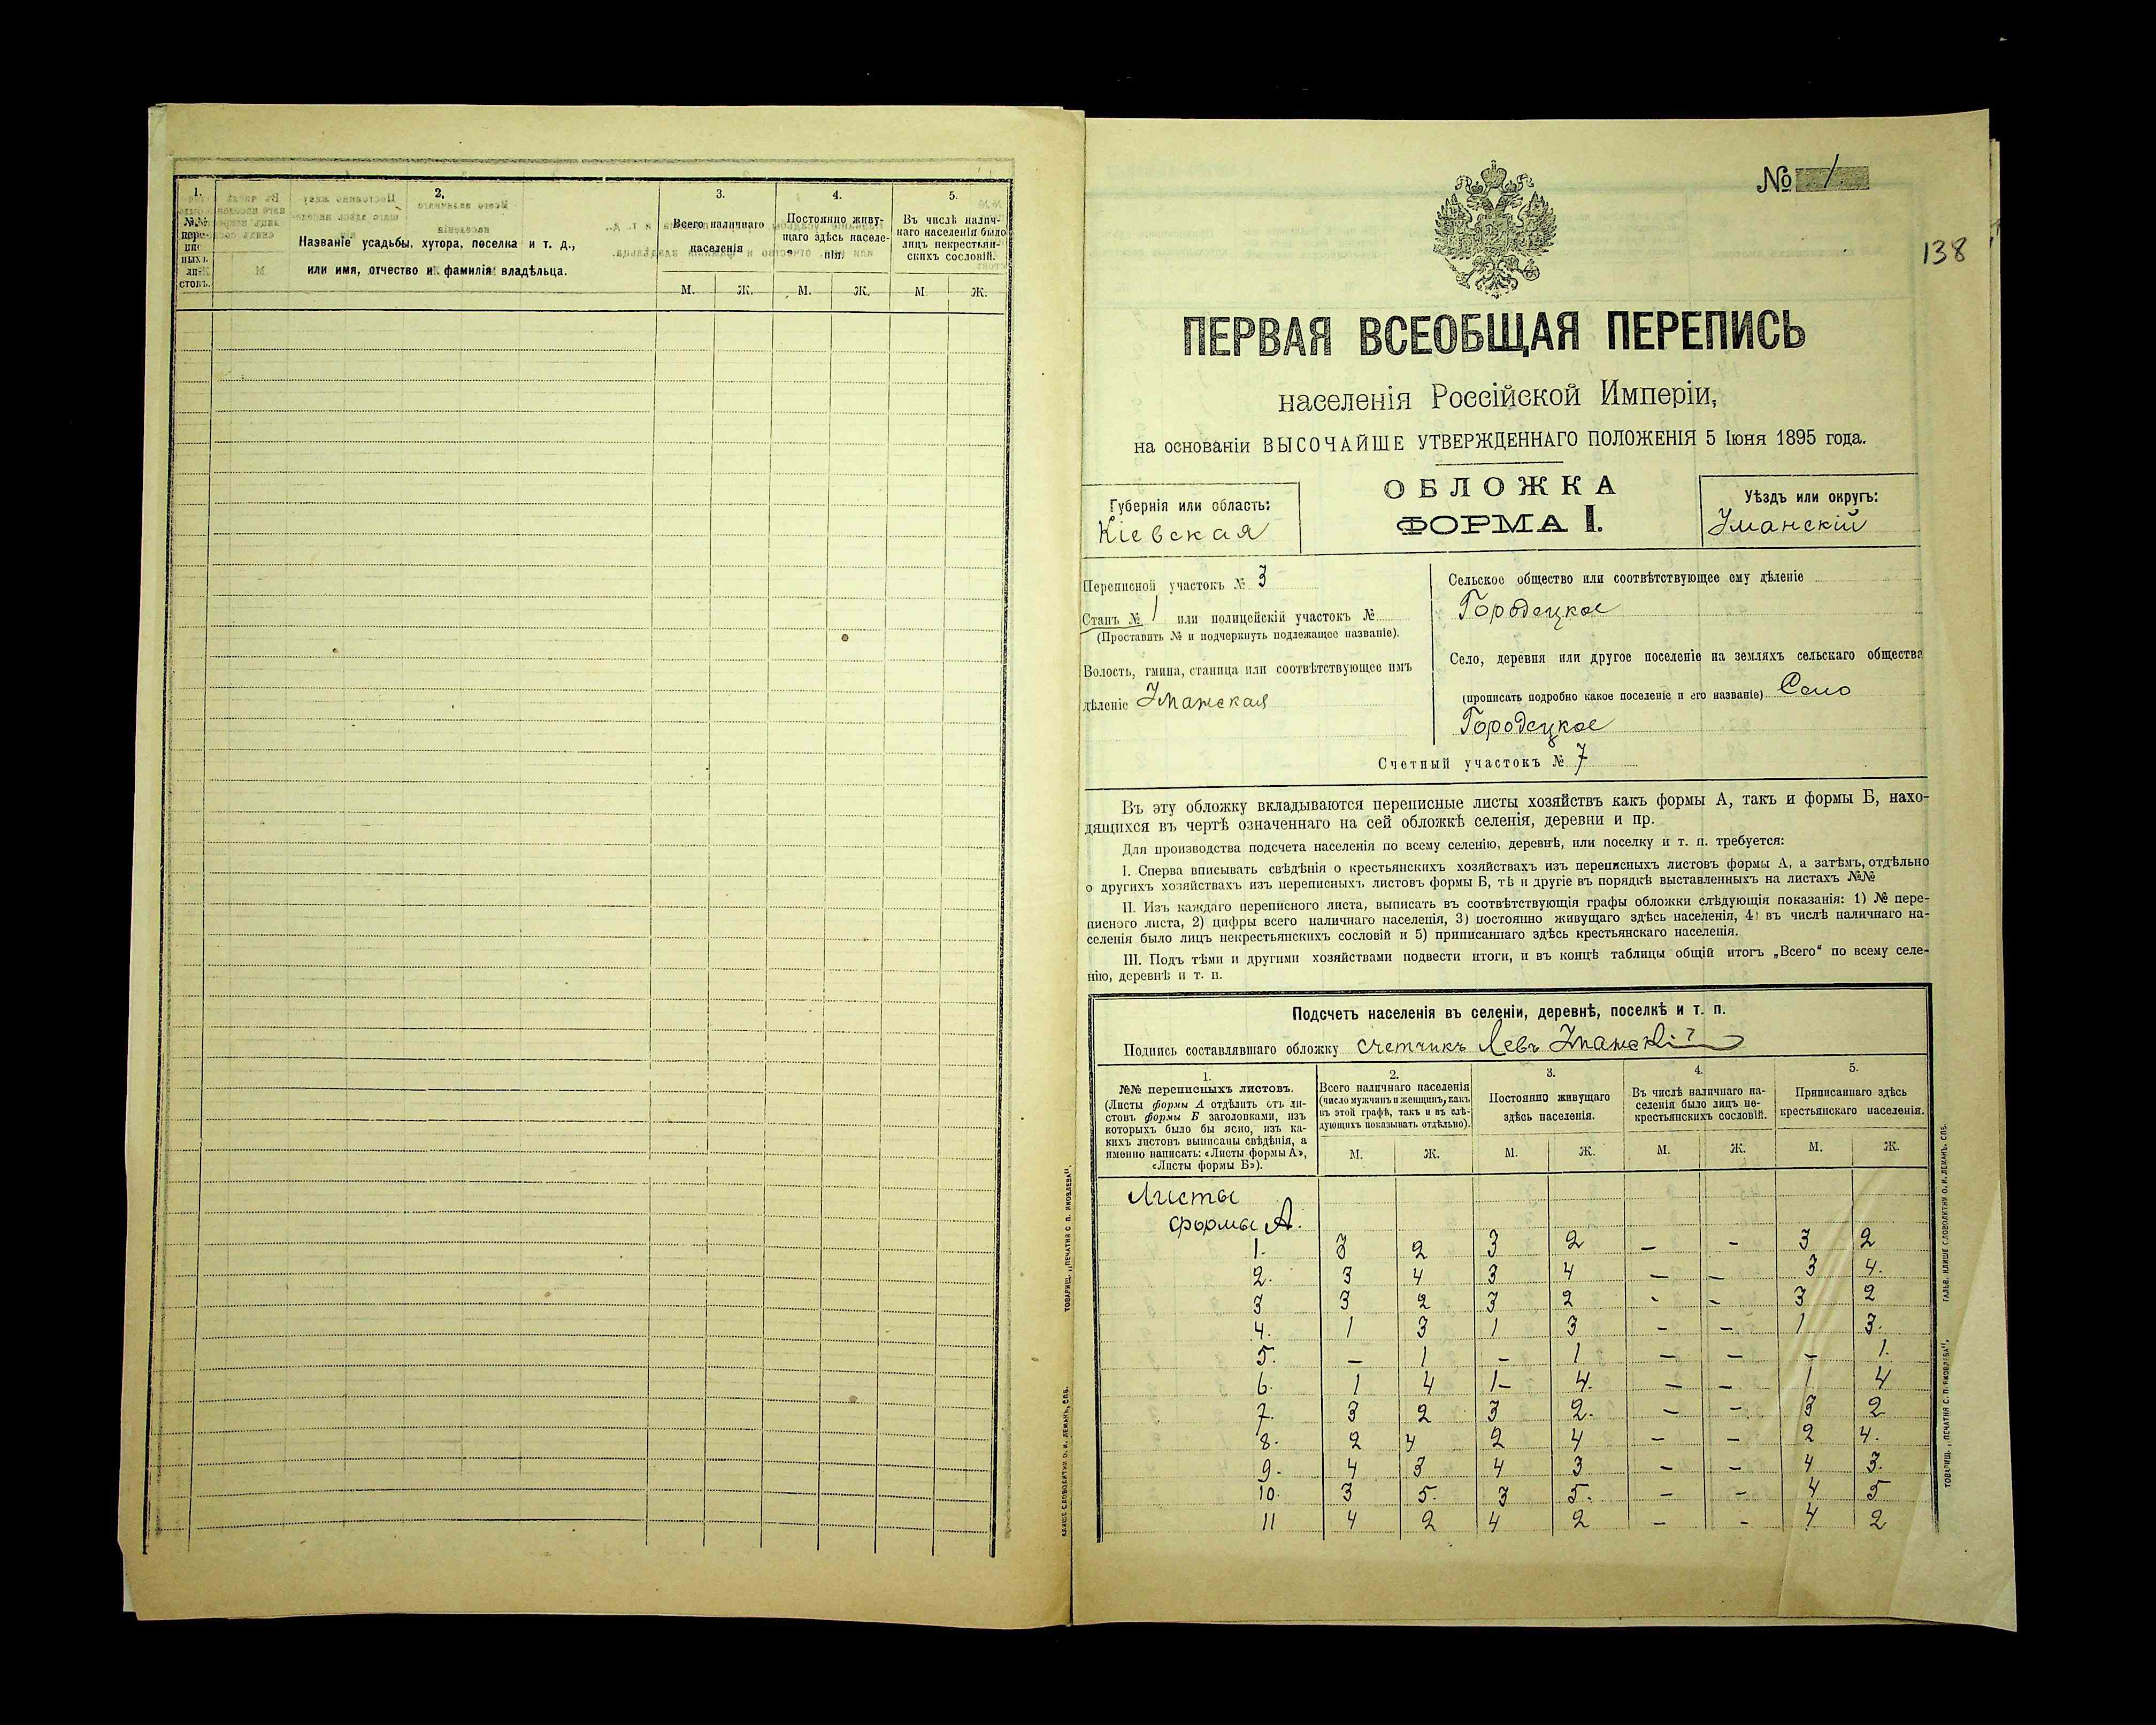 1.
№№ переписныхъ листовъ.
2.
Названіе усадьбы, хутора, поселка и т. д.,
или имя, отчество и фамилія владѣльца.
3.
Всего наличнаго
населенія
М. Ж.
4.
Постоянно живу-
щаго здѣсь населе-
нія.
М. Ж.
5.
Въ числѣ налич-
наго населенія было
лицъ некрестьян-
скихъ сословій.
М. Ж.
№ 1
138
ПЕРВАЯ ВСЕОБЩАЯ ПЕРЕПИСЬ
населенія Россійской Имперіи,
на основаніи ВЫСОЧАЙШЕ УТВЕРЖДЕННАГО ПОЛОЖЕНІЯ 5 Іюня 1895 года.
ОБЛОЖКА
ФОРМА I.
Губернія или область:
Кіевская
Уѣздъ или округъ:
Уманскій
Переписной участокъ № 3
Станъ № 1 или полицейскій участокъ №
(Проставить № и подчеркнуть подлежащее названіе).
Волость, гмина, станица или соотвѣтствующее имъ
дѣленіе Уманская
Сельское общество или соотвѣтствующее ему дѣленіе
Городецкое
Село, деревня или другое поселеніе на земляхъ сельскаго общества
(прописать подробно какое поселеніе и его названіе) Село
Городецкое
Счетный участокъ № 7
Въ эту обложку вкладываются переписные листы хозяйствъ какъ формы А, такъ и формы Б, нахо-
дящихся въ чертѣ означеннаго на сей обложкѣ селенія, деревни и пр.
Для производства подсчета населенія по всему селенію, деревнѣ, или поселку и т. п. требуется:
I. Сперва вписывать свѣдѣнія о крестьянскихъ хозяйствахъ изъ переписныхъ листовъ формы А, а затѣмъ, отдѣльно
о другихъ хозяйствахъ изъ переписныхъ листовъ формы Б, тѣ и другіе въ порядкѣ выставленныхъ на листахъ №№
II. Изъ каждаго переписного листа, выписать въ соотвѣтствующія графы обложки слѣдующія показанія: 1) № пере-
писного листа, 2) цифры всего наличнаго населенія, 3) постоянно живущаго здѣсь населенія, 4) въ числѣ наличнаго на-
селенія было лицъ некрестьянскихъ сословій и 5) приписаннаго здѣсь крестьянскаго населенія.
III. Подъ тѣми и другими хозяйствами подвести итоги, и въ концѣ таблицы общій итогъ „Всего“ по всему селе-
нію, деревнѣ и т. п.
Подсчетъ населенія въ селеніи, деревнѣ, поселкѣ и т. п.
Подпись составлявшаго обложку счетчикъ Левъ Уманскій
1.
№№ переписныхъ листовъ.
(Листы формы А отдѣлить отъ ли-
стовъ формы Б заголовками, изъ
которыхъ было бы ясно, изъ ка-
кихъ листовъ выписаны свѣдѣнія, а
именно написать: «Листы формы А»,
«Листы формы Б»).
2.
Всего наличнаго населенія
(число мужчинъ и женщинъ, какъ
въ этой графѣ, такъ и въ слѣ-
дующихъ показывать отдѣльно).
М. Ж.
3.
Постоянно живущаго
здѣсь населенія.
М. Ж.
4.
Въ числѣ наличнаго на-
селенія было лицъ не-
крестьянскихъ сословій.
М. Ж.
5.
Приписаннаго здѣсь
крестьянскаго населенія.
М. Ж.
Листы
формы А.
1. 3 2 3 2 — - 3 2
2. 3 4 3 4 — — 3 4.
3 3 2 3 2 - - 3 2
4. 1 3 1 3 - — 1 3.
5. — 1 — 1 — — — 1.
6. 1 4 1- 4. — — 1 4
7. 3 2 3 2. — — 3 2
8. 2 4 2 4 — — 2 4.
9. 4 3 4 3 — — 4 3.
10. 3 5. 3 5. — — 4 5
11 4 2 4 2 — - 4 2
ТОВАРИЩ. „ПЕЧАТНЯ С. П. ЯКОВЛЕВА“.
КЛИШЕ СЛОВОЛИТНИ О. И. ЛЕМАНЪ, СПБ.
ТОВАРИЩ. „ПЕЧАТНЯ С. П. ЯКОВЛЕВА“.
ГАЛЬВ. КЛИШЕ СЛОВОЛИТНИ О. И. ЛЕМАНЪ. СПБ.